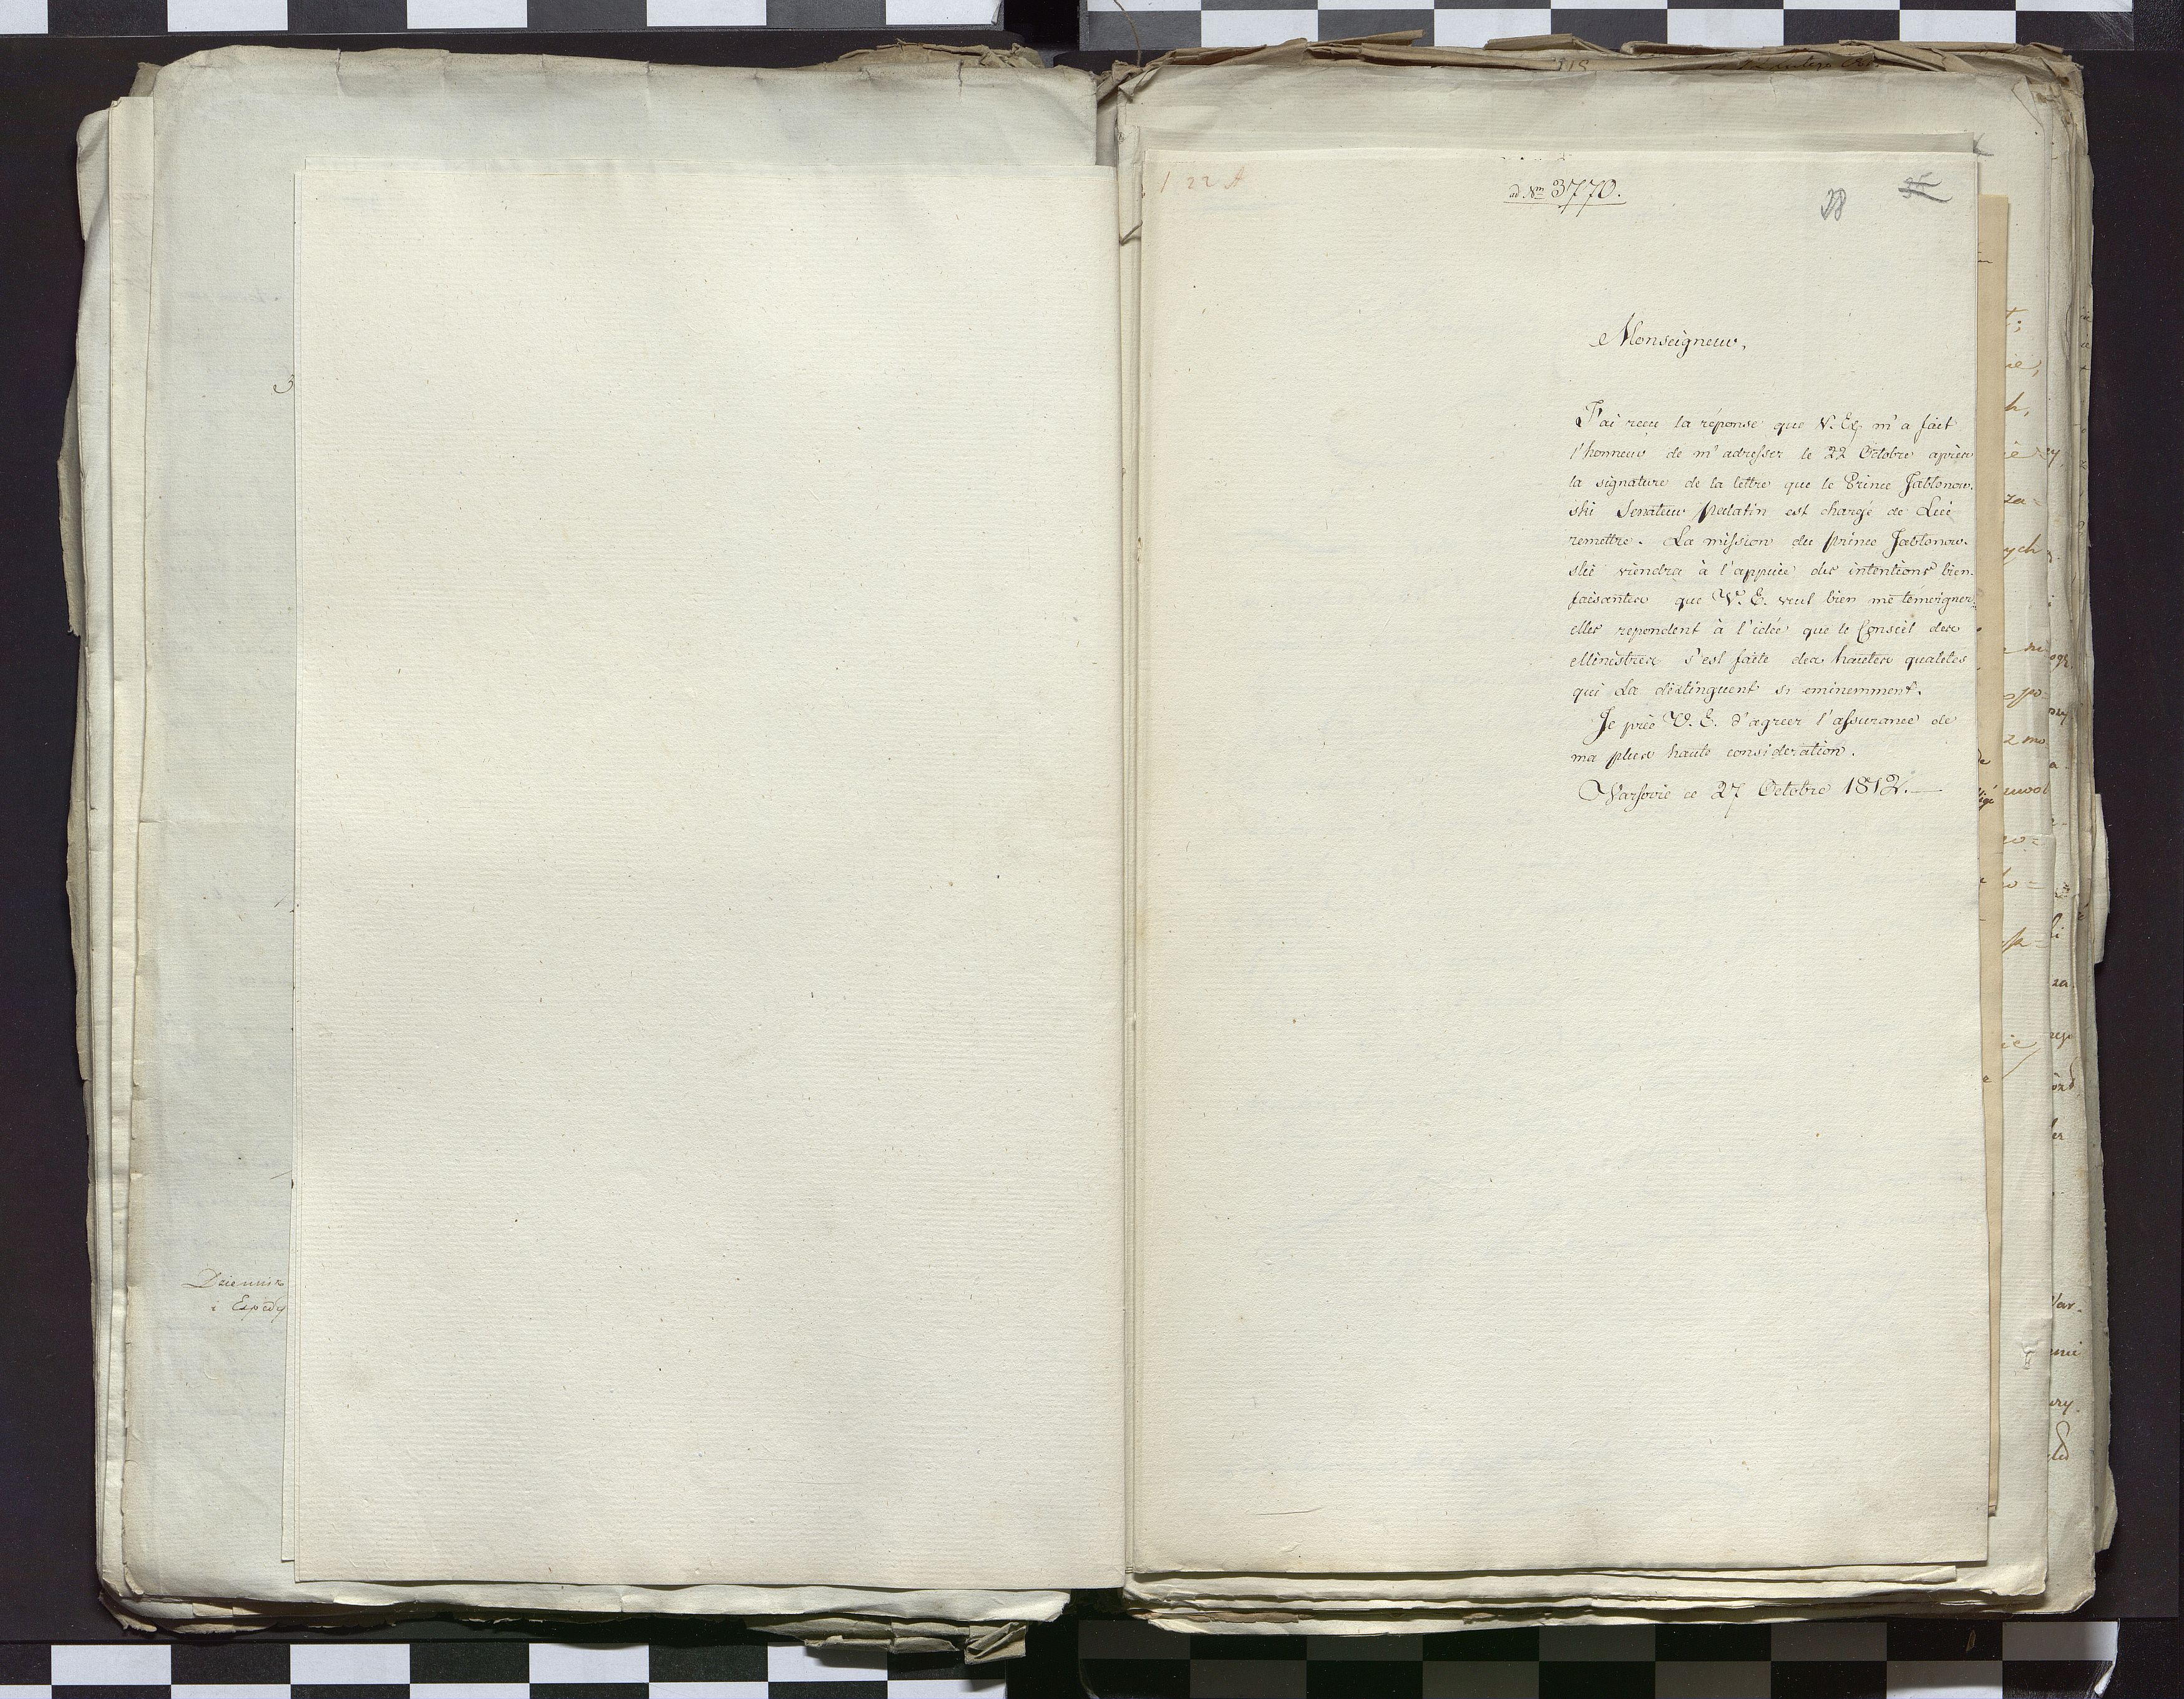 Dziennik
i Exped
1 22 A
ad. Nm 3770.
38 35
Monseigneur,
J'ai reçu la réponse que V. Ex. m'a fait
l'honneur de m'adresser le 22 Octobre après
la signature de la lettre que le Prince Jablonow-
ski Senateur Palatin est chargé de Lui
remettre. La mission du prince Jablonow-
ski viendra à l'appuie des intentions bien-
faisantes que V. E. veut bien me temoigner;
elles repondent à l'idée que le Conseil des
Ministres s'est faite des hautes qualités
qui La distinguent si eminemment.
Je prie V. E. d'agréer l'assurance de
ma plus haute consideration.
Varsovie ce 27 Octobre 1812.—